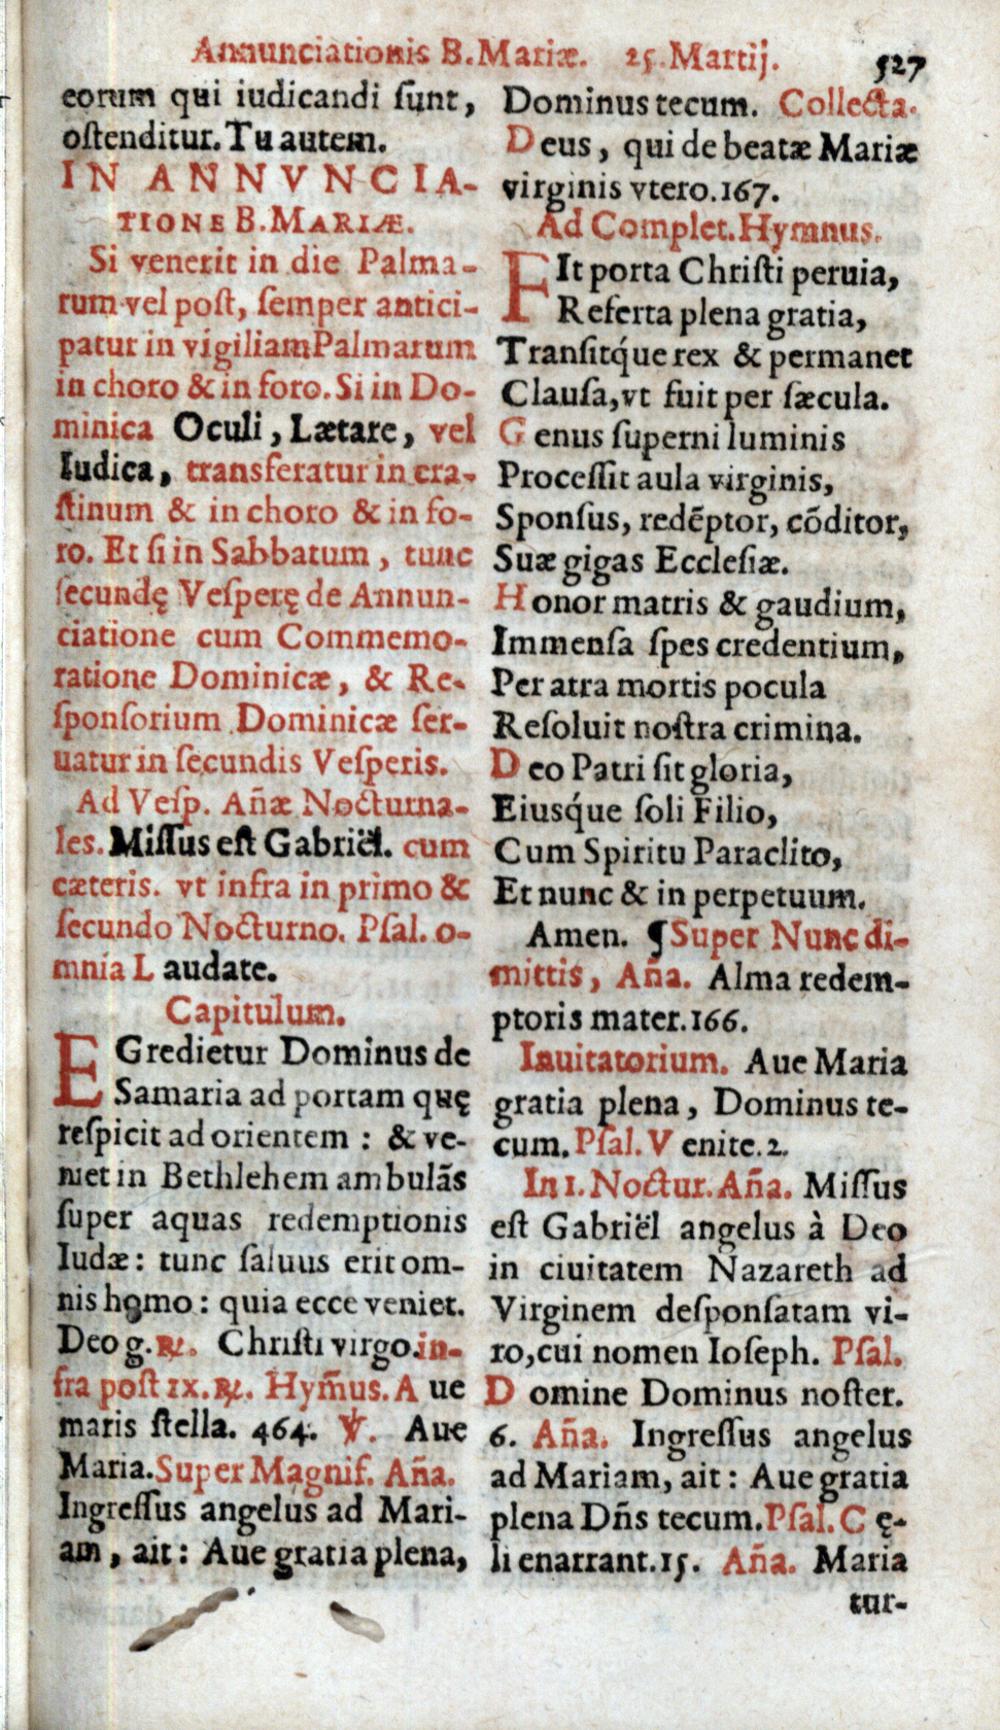 Annunciationis B. Mariæ. 25. Martij. 527
eorum qui iudicandi ſunt,
oſtenditur. Tu autem.
IN ANNVNCIA-
TIONE B. MARIÆ.
Si venerit in die Palma-
rum vel poſt, ſemper antici-
patur in vigiliam Palmarum
in choro & in foro. Si in Do-
minica Oculi, Lætare, vel
Iudica, transferatur in cra-
ſtinum & in choro & in fo-
ro. Et ſi in Sabbatum, tunc
ſecundę Veſperę de Annun-
ciatione cum Commemo-
ratione Dominicæ, & Re-
ſponſorium Dominicæ ſer-
uatur in ſecundis Veſperis.
Ad Veſp. Añæ Nocturna-
les. Miſſus eſt Gabriël. cum
cæteris. vt infra in primo &
ſecundo Nocturno. Pſal. o-
mnia Laudate.
Capitulum.
EGredietur Dominus de
Samaria ad portam quę
reſpicit ad orientem : & ve-
niet in Bethlehem ambulãs
ſuper aquas redemptionis
Iudæ: tunc ſaluus erit om-
nis homo: quia ecce veniet.
Deo g. ℟. Chriſti virgo. in-
fra poſt ix. ℟. Hym̃us. Aue
maris ſtella. 464. ℣. Aue
Maria. Super Magnif. Aña.
Ingreſſus angelus ad Mari-
am, ait: Aue gratia plena,
Dominus tecum. Collecta.
Deus, qui de beatæ Mariæ
virginis vtero. 167.
Ad Complet. Hymnus.
FIt porta Chriſti peruia,
Referta plena gratia,
Tranſitq́ue rex & permanet
Clauſa, vt fuit per ſæcula.
Genus ſuperni luminis
Proceſſit aula virginis,
Sponſus, redẽptor, cõditor,
Suæ gigas Eccleſiæ.
Honor matris & gaudium,
Immenſa ſpes credentium,
Per atra mortis pocula
Reſoluit noſtra crimina.
Deo Patri ſit gloria,
Eiusq́ue ſoli Filio,
Cum Spiritu Paraclito,
Et nunc & in perpetuum.
Amen. ¶ Super Nunc di-
mittis, Aña. Alma redem-
ptoris mater. 166.
Inuitatorium. Aue Maria
gratia plena, Dominus te-
cum. Pſal. Venite. 2.
In 1. Noctur. Aña. Miſſus
eſt Gabriël angelus à Deo
in ciuitatem Nazareth ad
Virginem deſponſatam vi-
ro, cui nomen Ioſeph. Pſal.
Domine Dominus noſter.
6. Aña. Ingreſſus angelus
ad Mariam, ait: Aue gratia
plena Dñs tecum. Pſal. Cę-
li enarrant. 15. Aña. Maria
tur-